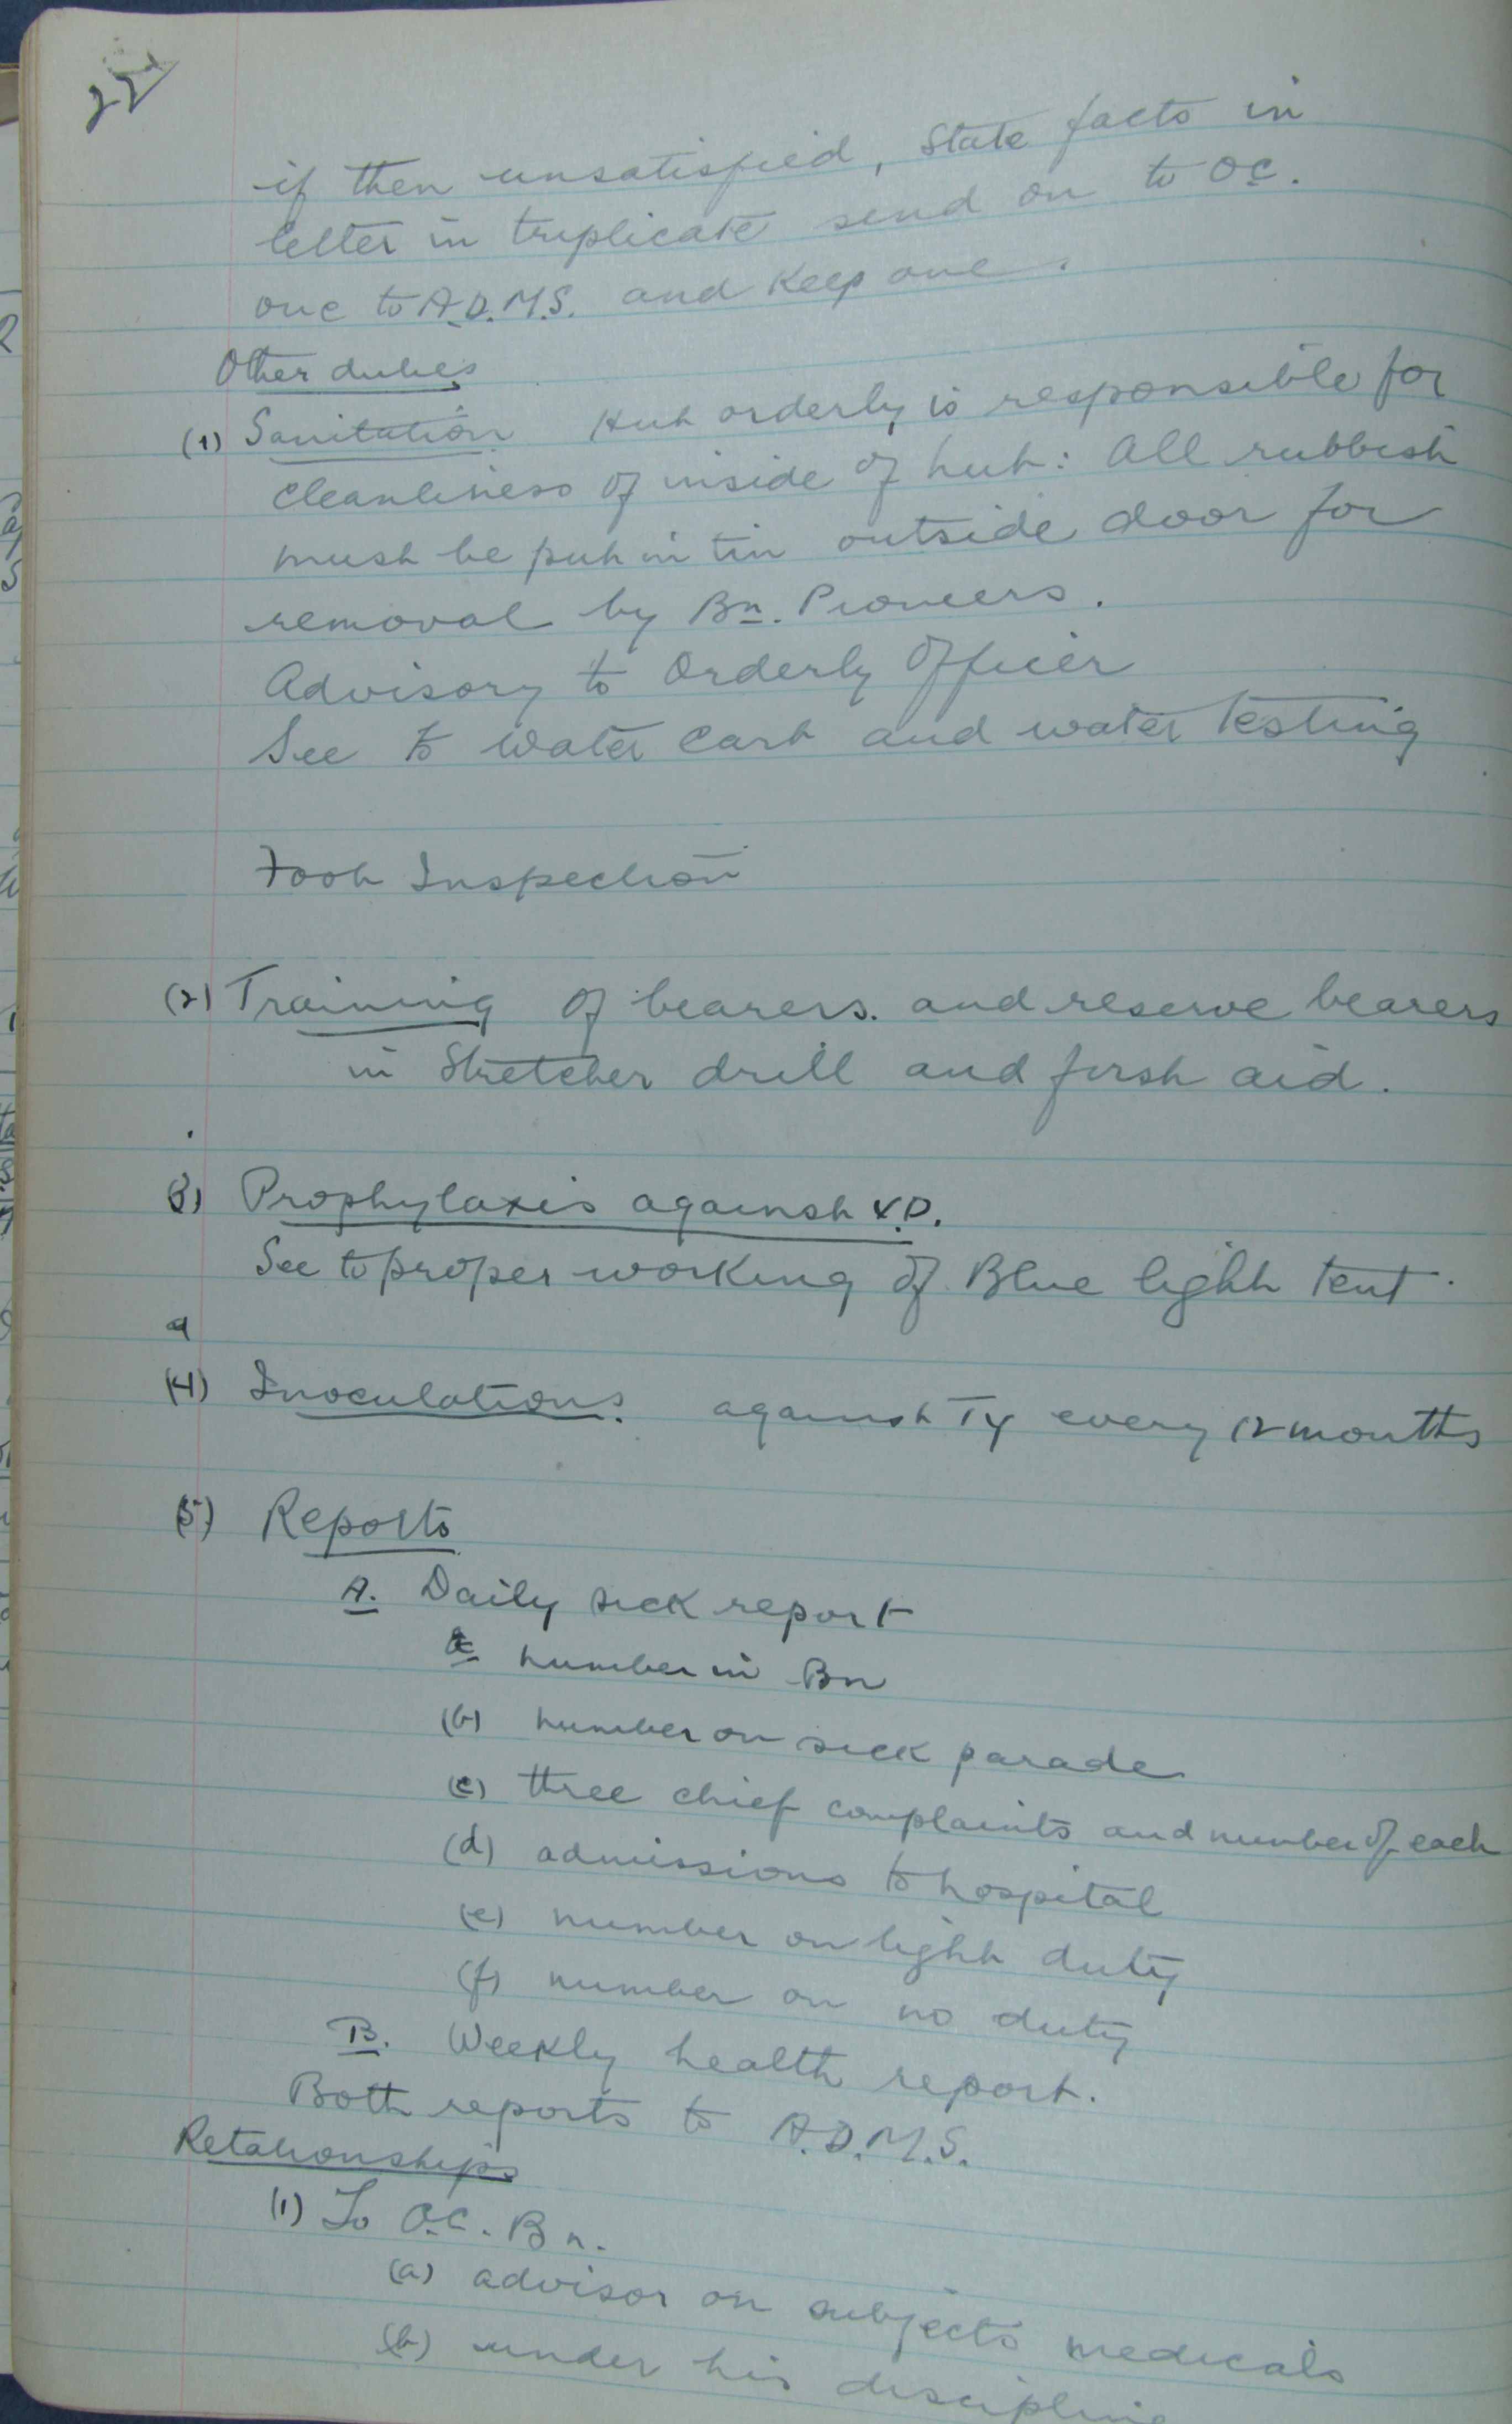 22
if then unsatisfied, State facts in
letter in triplicate send on to OC.
one to A.D.M.S. and Keep one.
Other duties
(1) Sanitation Hut orderly is responsible for
cleanliness of inside of hut: All rubbish
must be put in tin outside door for
removal by Bn. Pioneers.
Advisory to Orderly Officer
See to Water Cart and water testing
Foot Inspection
(2) Training of bearers. and reserve bearers
in Stretcher drill and first aid.
(3) Prophylaxis against V.D.
See to proper working of Blue light tent.
(4) Inoculations. against Ty every 12 months
(5) Reports
A. Daily sick report
a number in Bn
(b) number on sick parade
(c) three chief complaints and number of each
(d) admissions to hospital
(e) number on light duty
(f) number on no duty
B. Weekly health report.
Both reports to A.D.M.S.
Relationships
(1) To O.C. Bn.
(a) advisor on subjects medicals
(b) under his discipline